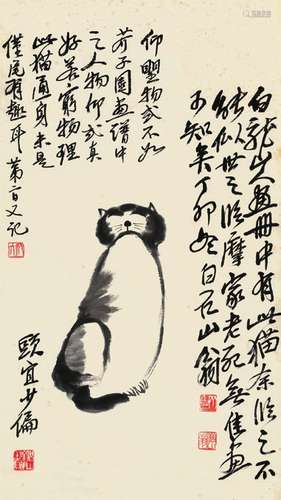 白龍山人畫冊中有此猫余臨之不
能似世之臨摩家老死無佳畫
可知矣丁卯冬白石山翁
仰塑物或不如
芥子園畫譜中
之人物仰或真
好若窮物理
此猫通身未是
僅尾有趣耳 又記
頭宜少偏